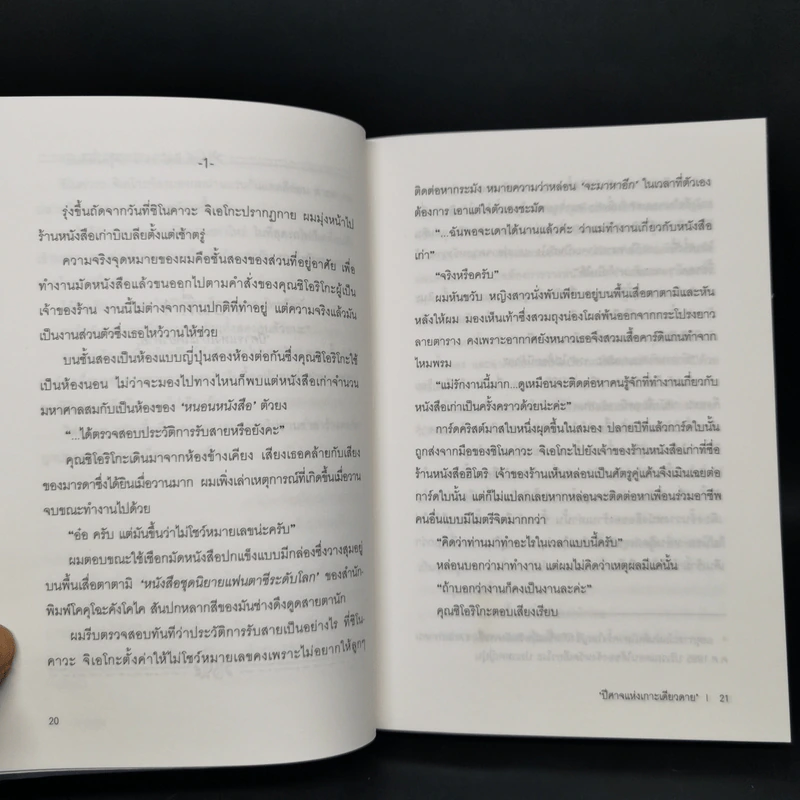 -1-
รุ่งขึ้นถัดจากวันที่ชิโนคาวะ จิเอโกะปรากฏกาย ผมมุ่งหน้าไป
ร้านหนังสือเก่าบิเบลียตั้งแต่เช้าตรู่
ความจริงจุดหมายของผมคือชั้นสองของส่วนที่อยู่อาศัย เพื่อ
ทำงานมัดหนังสือแล้วขนออกไปตามคำสั่งของคุณชิโอริโกะผู้เป็น
เจ้าของร้าน งานนี้ไม่ต่างจากงานปกติที่ทำอยู่ แต่ความจริงแล้วมัน
เป็นงานส่วนตัวซึ่งเธอไหว้วานให้ช่วย
บนชั้นสองเป็นห้องแบบญี่ปุ่นสองห้องต่อกันซึ่งคุณชิโอริโกะใช้
เป็นห้องนอน ไม่ว่าจะมองไปทางไหนก็พบแต่หนังสือเก่าจำนวน
มหาศาลสมกับเป็นห้องของ ‘หนอนหนังสือ’ ตัวยง
“...ได้ตรวจสอบประวัติการรับสายหรือยังคะ”
คุณชิโอริโกะเดินมาจากห้องข้างเคียง เสียงเธอคล้ายกับเสียง
ของมารดาซึ่งได้ยินเมื่อวานมาก ผมเพิ่งเล่าเหตุการณ์ที่เกิดขึ้นเมื่อวาน
จบขณะทำงานไปด้วย
“อ๋อ ครับ แต่มันขึ้นว่าไม่โชว์หมายเลขน่ะครับ”
ผมตอบขณะใช้เชือกมัดหนังสือปกแข็งแบบมีกล่องซึ่งวางสุมอยู่
บนพื้นเสื่อตาตามิ ‘หนังสือชุดนิยายแฟนตาซีระดับโลก’ ของสำนัก-
พิมพ์โคคุโฉะคังโคไค สันปกหลากสีของมันช่างดึงดูดสายตานัก
ผมรีบตรวจสอบทันทีว่าประวัติการรับสายเป็นอย่างไร ที่ชิโน-
คาวะ จิเอโกะตั้งค่าให้ไม่โชว์หมายเลขคงเพราะไม่อยากให้ลูกๆ
20
ติดต่อหากระมัง หมายความว่าหล่อน ‘จะมาหาอีก’ ในเวลาที่ตัวเอง
ต้องการ เอาแต่ใจตัวเองชะมัด
“...ฉันพอจะเดาได้นานแล้วค่ะ ว่าแม่ทำงานเกี่ยวกับหนังสือ
เก่า”
“จริงหรือครับ”
ผมหันขวับ หญิงสาวนั่งพับเพียบอยู่บนพื้นเสื่อตาตามิและหัน
หลังให้ผม มองเห็นเท้าซึ่งสวมถุงน่องโผล่พ้นออกจากกระโปรงยาว
ลายตาราง คงเพราะอากาศยังหนาวเธอจึงสวมเสื้อคาร์ดิแกนทำจาก
ไหมพรม
“แม่รักงานนี้มาก...ดูเหมือนจะติดต่อหาคนรู้จักที่ทำงานเกี่ยวกับ
หนังสือเก่าเป็นครั้งคราวด้วยน่ะค่ะ”
การ์ดคริสต์มาสใบหนึ่งผุดขึ้นในสมอง ปลายปีที่แล้วการ์ดใบนั้น
ถูกส่งจากมือของชิโนคาวะ จิเอโกะไปยังเจ้าของร้านหนังสือเก่าที่ชื่อ
ร้านหนังสือฮิโตริ เจ้าของร้านเห็นหล่อนเป็นศัตรูคู่แค้นจึงเมินเฉยต่อ
การ์ดใบนั้น แต่ก็ไม่แปลกเลยหากหล่อนจะติดต่อหาเพื่อนร่วมอาชีพ
คนอื่นแบบมีไมตรีจิตมากกว่า
“คิดว่าท่านมาทำอะไรในเวลาแบบนี้ครับ”
หล่อนบอกว่ามาทำงาน แต่ผมไม่คิดว่าเหตุผลมีแค่นั้น
“ถ้าบอกว่างานก็คงเป็นงานละค่ะ”
คุณชิโอริโกะตอบเสียงเรียบ
‘ปีศาจแห่งเกาะเดียวดาย’ | 21